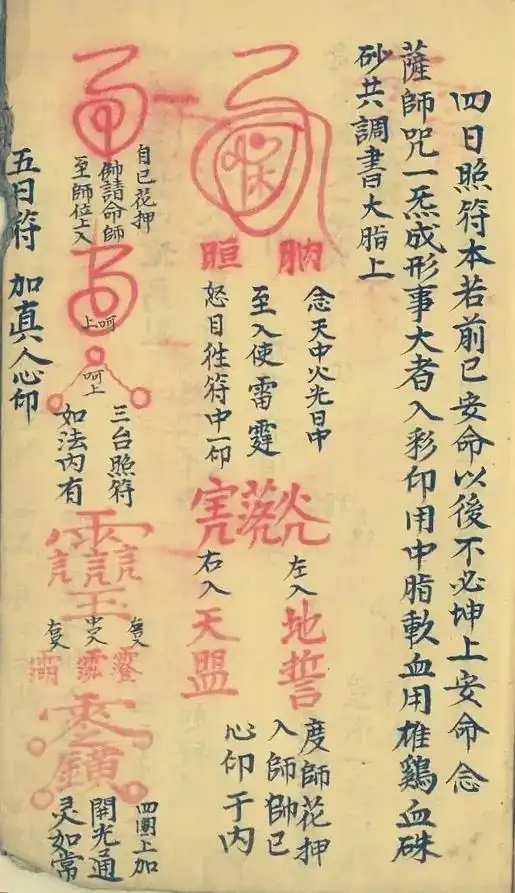 四日照符本若前已安命以後不必坤上安命念
薩師咒一炁成形事大者入彩印用中脂軟血用雄鷄血硃
砂共調書大脂上
胸 䀏
念天中火光日中
至入使雷霆
怒目徃符中一卬
左入
地誓
右入
天盟
度師花押
入師帥已
心卬于内
自已花押
帥請命師
至師位上入
呵上
呵上
三台照符
如法内有
玉
中又
四圍上加
開光通
灵如常
五日符 加真人心卬